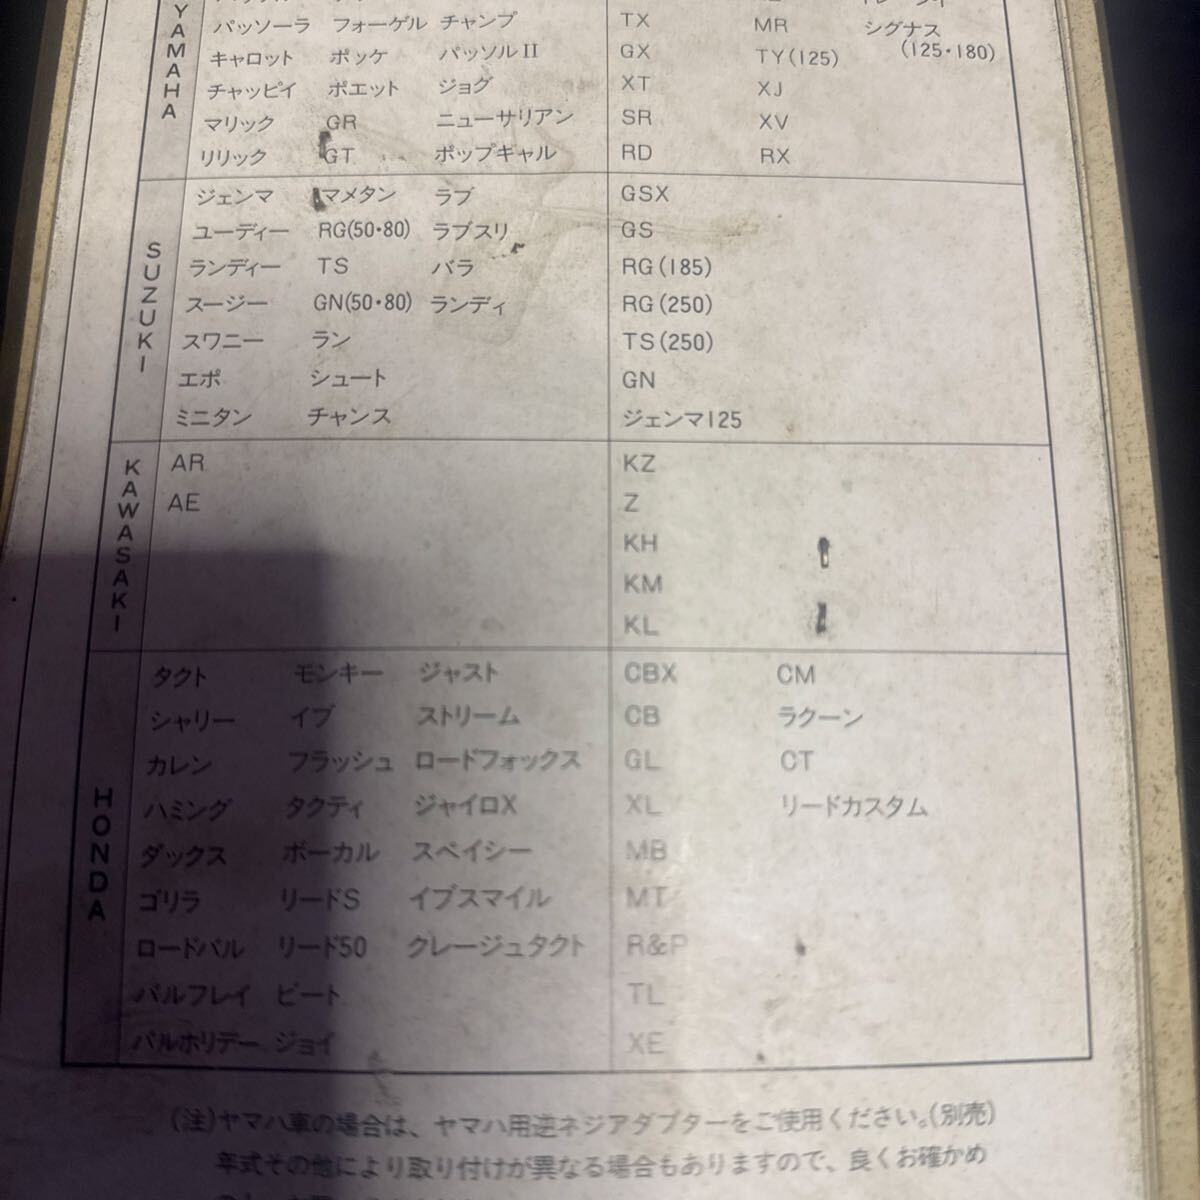 YAMAHA
パッソーラ フォーゲル チャンプ TX MR シグナス
キャロット ポッケ パッソルII GX TY(125) (125・180)
チャッピイ ポエット ジョグ XT XJ
マリック GR ニューサリアン SR XV
リリック GT ポップギャル RD RX
SUZUKI
ジェンマ マメタン ラブ GSX
ユーディー RG(50・80) ラブスリー GS
ランディー TS バラ RG(185)
スージー GN(50・80) ランディ RG(250)
スワニー ラン TS(250)
エポ シュート GN
ミニタン チャンス ジェンマ125
KAWASAKI
AR KZ
AE Z
KH
KM
KL
HONDA
タクト モンキー ジャスト CBX CM
シャリー イブ ストリーム CB ラクーン
カレン フラッシュ ロードフォックス GL CT
ハミング タクティ ジャイロX XL リードカスタム
ダックス ボーカル スペイシー MB
ゴリラ リードS イブスマイル MT
ロードパル リード50 クレージュタクト R&P
パルフレイ ビート TL
パルホリデー ジョイ XE
(注)ヤマハ車の場合は、ヤマハ用逆ネジアダプターをご使用ください。(別売)
年式その他により取り付けが異なる場合もありますので、良くお確かめ